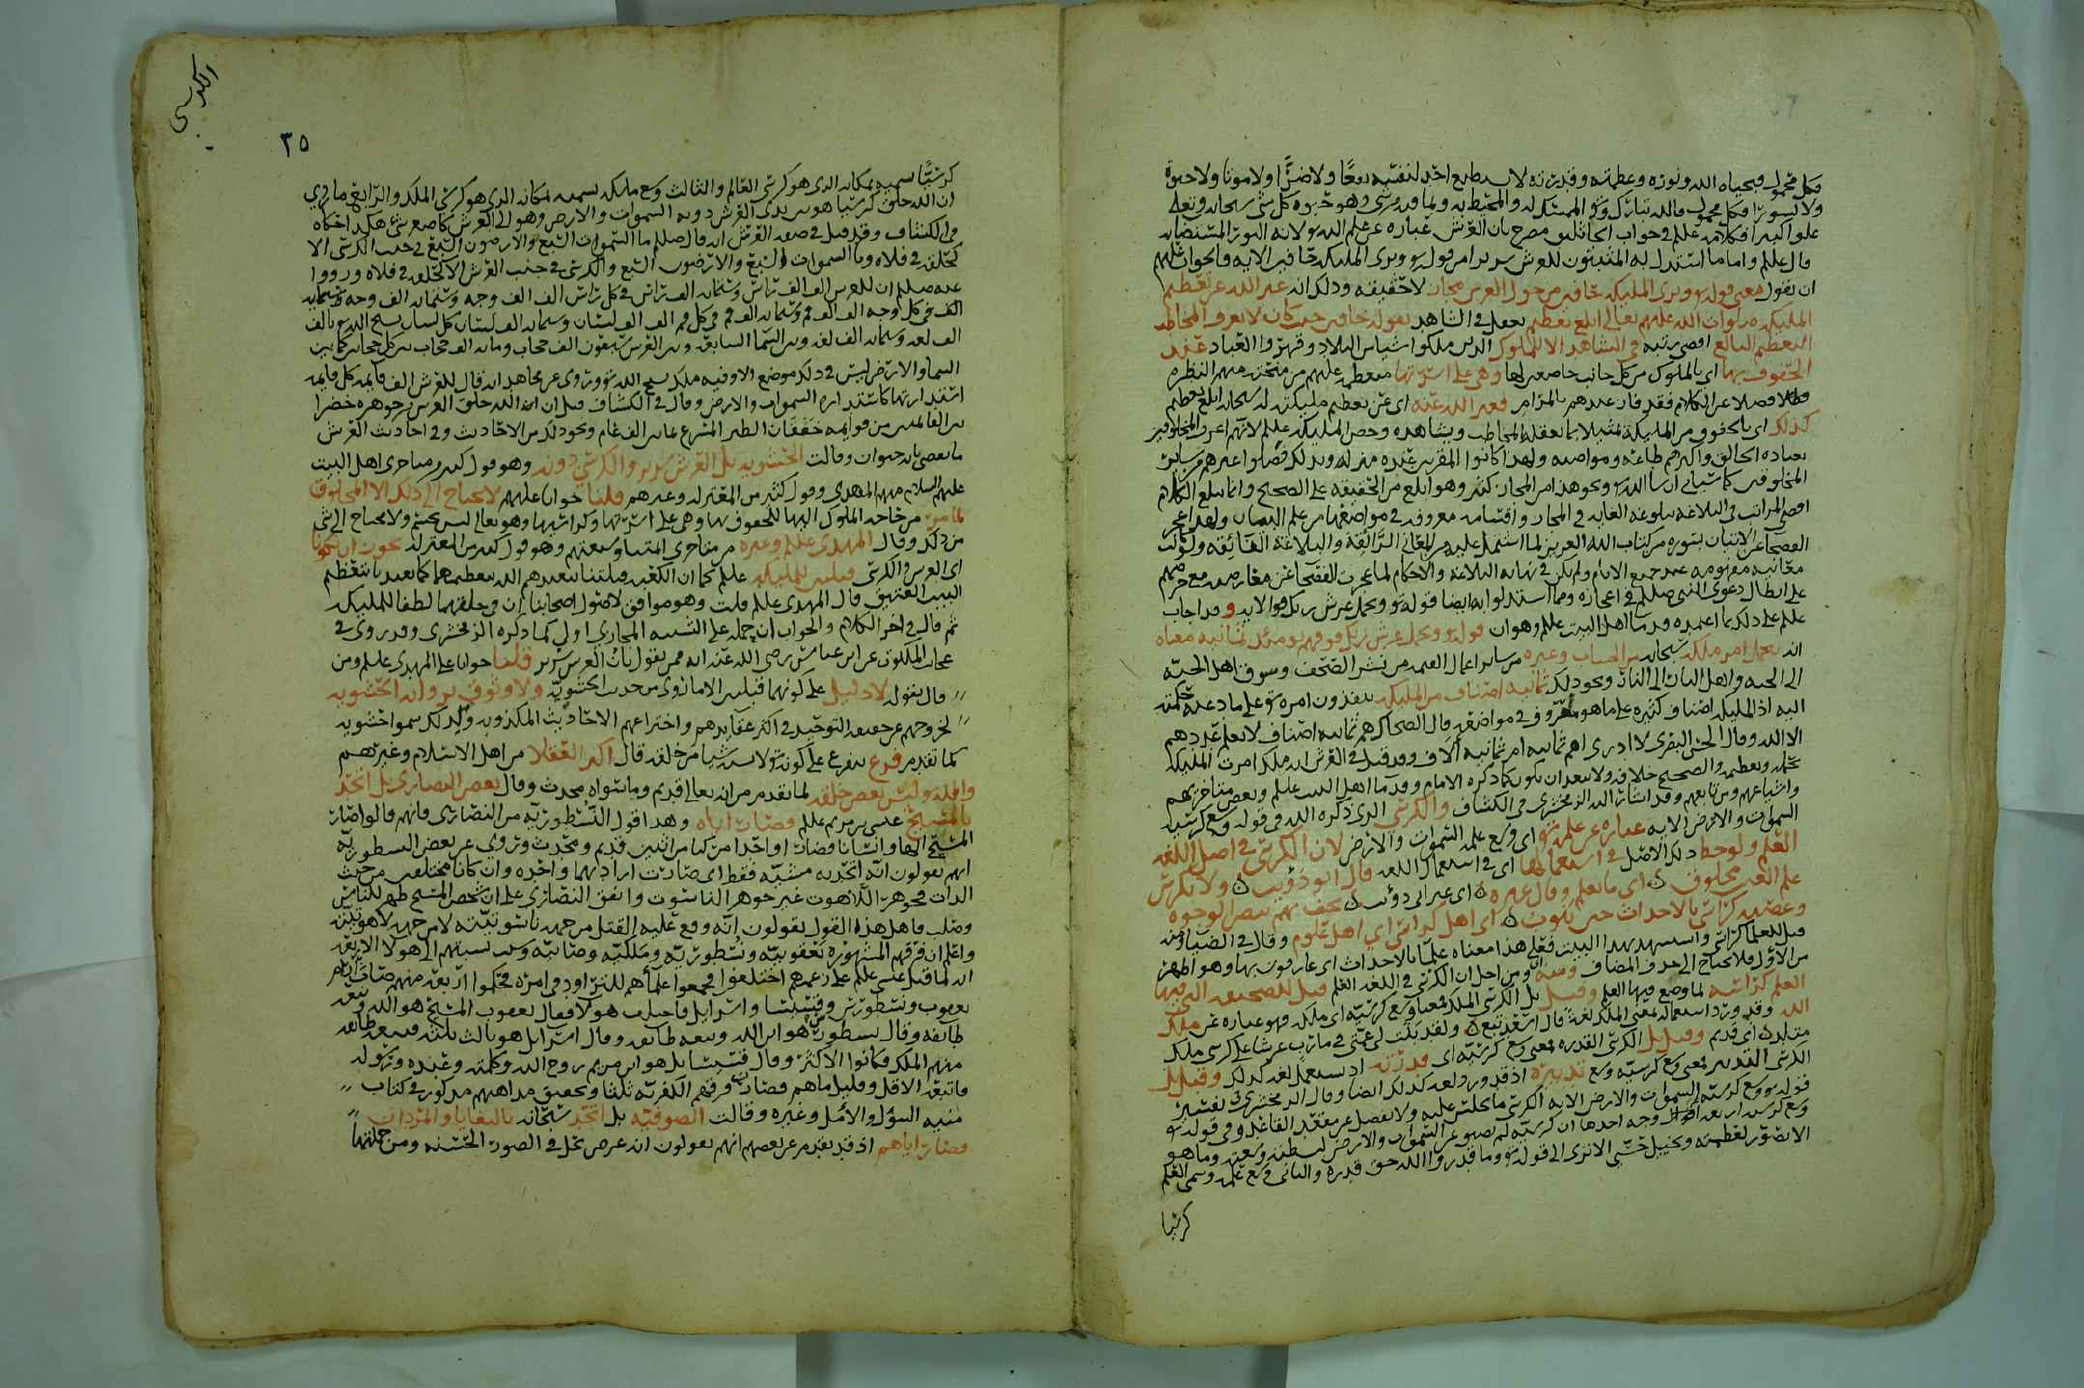 فكل محمول فبحياه الله ونوره وعظمته وقدرته لا يستطيع احد لنفسه نفعًا ولا ضرًّا ولا موتا ولا حيوة
ولا نشورًا فكل محمول والله تبارك وتعالى الممسك له والمحيط به وبما فيه وهو حيوة كل شي سبحانه وتعالى
علوا كبيرا فكلامه علم في جواب الجاثليق مصرح بان العرش عباره عن علم الله
قال علم واما ما استدل به المثبتون للعرش سريرا من قوله وترى المليكه حافين الايه فالجواب
ان يقول معنى قوله وترى المليكه حافين من حول العرش مجاز لا حقيقه وذلك انه عبر الله عن تعظيم
المليكه صلوات الله عليهم تعالى ابلغ تعظيم يعقل في الشاهد بقوله حافين حيث كان لا يعرف المخاطب
التعظيم البالغ اقصى رتبه في الشاهد الا للملوك الذين ملكوا البلاد وقهروا العباد عند
الحفوف بها اي بالملوك من كل جانب خاضعين لها وهي على اسرتها
فضلا عن الكلام فقد فاز عندهم بالمرام فعبر الله عنه اي عن تعظيم مليكته له سبحانه ابلغ تعظيم
كذلك اي بالحفوف من المليكة تمثيلا بما يعقله المخاطب ويشاهده وخص المليكه علم لانهم اعرف المخلوقين
بعباده الخالق واكثرهم طاعة ولهذا كانوا المقربين عنده منزله وبذلك فضلوا على غيرهم من سائر
المخلوقين ونحو هذا من المجاز كثير وهو ابلغ من الحقيقه على الصحيح وانما يبلغ الكلام
اقصى المراتب في البلاغه ببلوغه الغايه في المجاز واقسامه معروفه في مواضعها من علم البيان ولهذا عجز
الفصحا عن الاتيان بسوره من كتاب الله العزيز لما اشتمل عليه من المعاني الرائقة والبلاغه الفائقه ولو كانت
معانيه مفهومه عند جميع الانام ولم يكن في نهايه البلاغه والاحكام لما عجزت الفصحا عن معارضته مع حرصهم
على ابطال دعوى النبي صللم في اعجازه ومما استدلوا به ايضا قوله تع ويحمل عرش ربك فوق الايه وقد اجاب
علم على ذلك بما اعتمده قدما اهل البيت علم وهو ان قوله تع ويحمل عرش ربك فوقهم يومئذ ثمانيه معناه
انه يحمل امر ملكه سبحانه من الحساب وغيره من سائر اعمال القيمه من نشر الصحف وسوق اهل الجنة
الى الجنه واهل النار الى النار ونحو ذلك ثمانيه اصناف من المليكه ينفذون امره تع على ما دعت حكمته
اليه اذ المليكه اصناف كثيره على ما هو معروف في مواضعه قال الضحاك هم ثمانيه اصناف لا يعلم عددهم
الا الله وقال الحسن البصري لا ادري اهم ثمانيه ام ثمانيه الاف وقد قيل في العرش انه ملك امرت المليكه
بحمله وتعظيمه والصحيح خلافه ولا يبعد ان يكون كما ذكره الامام وقدما اهل البيت علم وبعض متاخريهم
واشياعهم ومن تابعهم وقد اشار اليه الزمخشري في الكشاف والكرسي الذي ذكره الله في قوله وسع كرسيه
السموات والارض الايه عباره عن علمه تع اي وسع علمه السموات والارض لان الكرسي في اصل اللغه
العلم ولوحظ ذلك الاصل في استعمالها اي في استعمال اللغه قال ابو ذؤيب ولا بكرسي
علم الغيب مخلوق اي ما يعلم وقال غيره اي غير ابي ذؤيب تحف بهم بيض الوجوه
وعصبة كراسي بالاحداث حين تنوب اي اهل كراسي اي اهل علوم وقال في الضيا ومنه
قيل للعلما كراسي واستشهد بهذا البيت فعلى هذا معناه علما بالاحداث اي عارفون بها وهو اظهر
من الاول فلا يحتاج الى حذف المضاف ومنه اي ومن اجل ان الكرسي في اللغه العلم قيل للصحيفه التي فيها
العلم كراسه لما وضع فيها العلم وقيل بل الكرسي الملك فمعنا وسع كرسيه اي ملكه فهو عباره عن ملك
الله وقد ورد استعماله بمعنى الملك لغة قال اسعد تبع ولقد بنت لي عمتي في مارب عرشا على كرسي ملك
متلد اي قديم وقيل بل الكرسي القدره فمعنى وسع كرسيه اي قدرته اذ يستعمل لغه كذلك وقيل بل
الكرسي التدبير فمعنى وسع كرسيه وسع تدبيره اذ قد ورد لغه كذلك ايضا وقال الزمخشري في تفسير
قوله تع وسع كرسيه السموات والارض الايه الكرسي ما يجلس عليه ولا يفضل عن مقعد القاعد وفي قوله تع
وسع كرسيه اربعه اوجه احدها ان كرسيه لم يضق عن السموات والارض لبسطته وسعته وما هو
الا تصوير لعظمته وتخييل حسي الا ترى الى قوله تع وما قدروا الله حق قدره والثاني وسع علمه وسمي العلم
كرسيا
الكرسي
٣٥
كرسيًّا تسميه بمكانه الذي هو كرسي العالم والثالث وسع ملكه تسميه بمكانه الذي هو كرسي الملك والرابع ما روي
ان الله خلق كرسيا هو بين يدي العرش دونه السموات والارض وهو الى العرش كاصغر شي هكذا حكاه
في الكشاف وقد قيل في صفه العرش انه قال صللم ما السموات السبع والارضون السبع في جنب الكرسي الا
كحلقه في فلاه وما السموات السبع والارضون السبع والكرسي في جنب العرش الا كحلقه في فلاه ورووا
عنه صللم ان للعرش الف الف راس وستمايه الف راس في كل راس الف الف وجه وستمايه الف وجه
الف في كل وجه الف الف فم وستمايه الف فم في كل فم الف الف لسان وستمايه الف لسان كل لسان يسبح الله تع بالف
الف لغه وستمايه الف لغه وبين السما السابعه وبين العرش سبعون الف حجاب ومايه الف حجاب بين كل حجابين كما بين
السما والارض ليس في ذلك موضع الا وفيه ملك يسبح الله تع وروي عن مجاهد انه قال للعرش الف قايمه كل قايمه
استدارتها كاستداره السموات والارض وقال في الكشاف قيل ان الله خلق العرش من جوهره خضرا
بين القايمتين من قوايمه خفقان الطير المسرع ثمانين الف عام ونحو ذلك من الاحاديث وفي احاديث العرش
ما يقضي بانه حيوان وقالت الحشويه بل العرش سرير والكرسي دونه وهو قول كثير من متاخري اهل البيت
عليهم السلام منهم المهدي وقول كثير من المعتزله وغيرهم قلنا جوابا عليهم لا يحتاج الى ذلك الا المخلوق
لما مر من حاجه الملوك اليها للحفوف بها وهي على اسرتها وكراسيها وهو تعالى ليس بجسم ولا يحتاج الى شي
من ذلك وقال المهدي علم وغيره من متاخري ائمتنا وشيعتهم وهو قول كثير من المعتزله يجوز ان يكونا
اي العرش والكرسي قبلتين للمليكه علم كما ان الكعبه قبلتنا تعبدهم الله بتعظيمهما كما تعبدنا بتعظيم
البيت العتيق قال المهدي علم قلت وهو موافق لاصول اصحابنا ان في خلقهما لطفا للمليكه
ثم قال في اخر الكلام والجواب ان حمله على التشبيه المجازي اولى كما ذكره الزمخشري وقد روي في
عن ابن عباس رضي الله عنه انه ممن يقول بان العرش سرير قلنا جوابا على المهدي علم ومن
قال بقوله لا دليل على كونهما قبلتين الا ما روي من حديث الحشويه ولا وثوق بروايه الحشويه
لخروجهم عن حقيقه التوحيد في اكثر عقايدهم واختراعهم الاحاديث المكذوبه ولذلك سموا حشويه
كما تقدم فرع يتفرع على كونه تع لا يشبه شيا من خلقه قال اكثر العقلا من اهل الاسلام وغيرهم
والله ليس بعض خلقه لما تقدم من انه تعالى قديم وما سواه محدث وقال بعض النصارى بل اتحد
بالمسيح عيسى بن مريم علم فصار اياه وهذا قول النسطوريه من النصارى فانهم قالوا صار
المسيح الها وانسانا فصار واحدا مركبا من اثنين قديم ومحدث وروي عن بعض النسطوريه
انهم يقولون انه اتحد به مشيه فقط اي صارت ارادتهما واحده وان كانا مختلفين من حيث
الذات فجوهر اللاهوت غير جوهر الناسوت واتفق النصارى على ان شخص المسيح ظهر للناس
وصلب فاهل هذا القول يقولون انه وقع عليه القتل من جهه ناسوتيته لا من جهه لاهوتيته
واعلم ان فرقهم المشهوره يعقوبيه ونسطوريه وملكيه وسبب نسبتهم الى هولا الاربعه
انه لما قبل عيسى علم على زعمهم اختلفوا فجمعوا علماهم للتراود في امره فحكموا اربعه منهم
يعقوب ونسطورس وفيشيثا واسرايل فاختلف هولا فقال يعقوب المسيح هو الله وتبعه
طائفه وقال نسطورس هو ابن الله وتبعه طائفه وقال اسرايل هو ثالث ثلثه فتبعه طائفه
منهم الملك فكانوا الاكثر وقال فيشيثا بل هو ابن مريم روح الله وكلمته وعبده ورسوله
فاتبعه الاقل وقليل ما هم فصارت فرقهم الكفريه ثلثا وتحقيق مذاهبهم مذكور في كتاب
منيه السؤل والامل وغيره وقالت الصوفيه بل اتحد سبحانه بالبغايا والمردان
فصار اياهم اذ قد تقدم عن بعضهم انهم يقولون انه عرض يحل في الصور الحسنه ومن جملتها